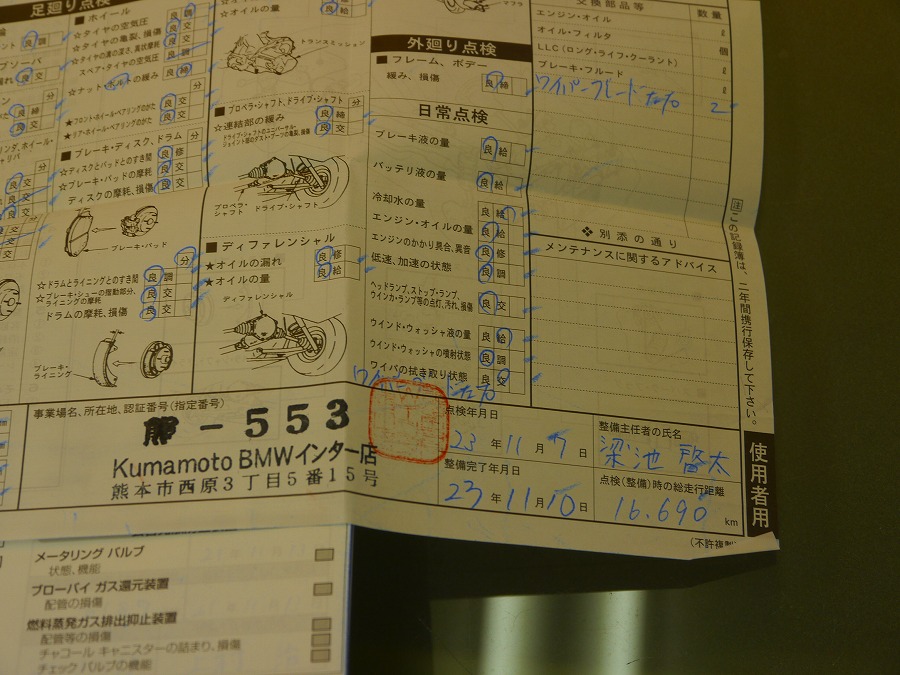 足廻り点検
ホイール
☆タイヤの空気圧
☆タイヤの亀裂、損傷
☆タイヤの溝の深さ、異状摩耗
スペア・タイヤの空気圧
☆ナット・ボルトの緩み
★フロント・ホイール・ベアリングのがた
★リア・ホイール・ベアリングのがた
ブレーキ・ディスク、ドラム
☆ディスクとパッドとのすき間
☆ブレーキ・パッドの摩耗
ディスクの摩耗、損傷
ブレーキ・パッド
☆ドラムとライニングとのすき間
☆ブレーキ・シューの摺動部分、
ライニングの摩耗
ドラムの摩耗、損傷
ブレーキ・
ライニング
☆オイルの量
トランスミッション
プロペラ・シャフト、ドライブ・シャフト
☆連結部の緩み
ドライブ・シャフトのユニバーサル・
ジョイント部のダスト・ブーツの亀裂、損傷
プロペラ・
シャフト
ドライブ・シャフト
ディファレンシャル
★オイルの漏れ
★オイルの量
ディファレンシャル
マフラ
外廻り点検
フレーム、ボデー
緩み、損傷
日常点検
ブレーキ液の量
バッテリ液の量
冷却水の量
エンジン・オイルの量
エンジンのかかり具合、異音
低速、加速の状態
ヘッドランプ、ストップ・ランプ、
ウインカ・ランプ等の点灯、汚れ、損傷
ウインド・ウォッシャ液の量
ウインド・ウォッシャの噴射状態
ワイパの拭き取り状態
交換部品等
数量
エンジン・オイル ℓ
オイル・フィルタ 個
LLC(ロング・ライフ・クーラント) ℓ
ブレーキ・フルード ℓ
❖ 別添の通り
メンテナンスに関するアドバイス
注 この記録簿は、二年間携行保存して下さい。
使用者用
事業場名、所在地、認証番号(指定番号)
－553
Kumamoto BMWインター店
熊本市西原3丁目5番15号
点検年月日
23年11月7日
整備完了年月日
23年11月10日
整備主任者の氏名
梁池 啓太
点検(整備)時の総走行距離
16.690 km
メータリング バルブ
状態、機能
ブローバイ ガス還元装置
配管の損傷
燃料蒸発ガス排出抑止装置
配管等の損傷
チャコール キャニスターの詰まり、損傷
チェック バルブの機能